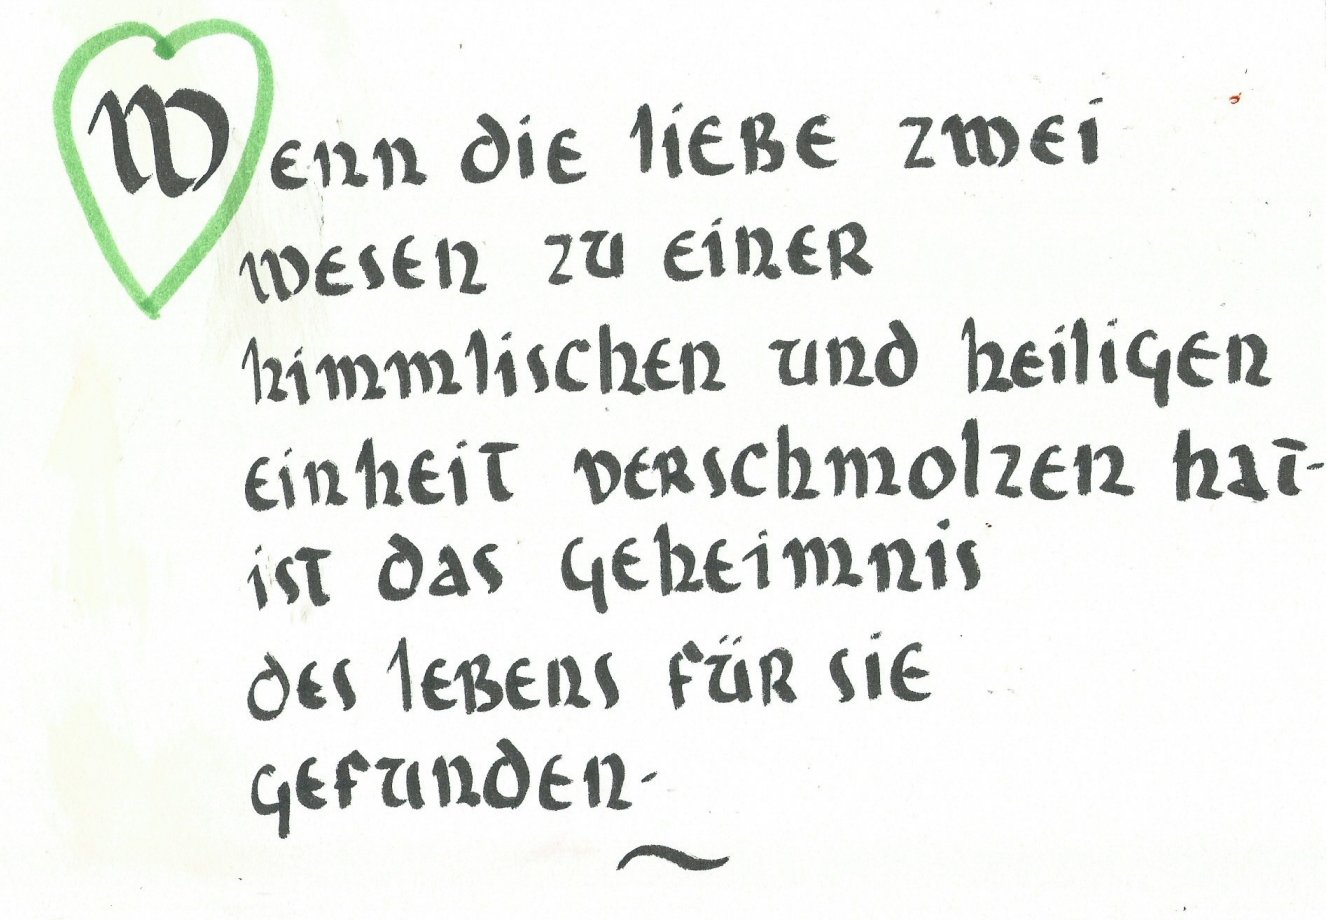 Wenn die liebe zwei
wesen zu einer
himmlischen und heiligen
einheit verschmolzen hat-
ist das geheimnis
des lebens für sie
gefunden-